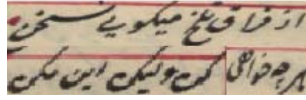 از فراق تلخ میگویی سخن
هر چه خواهی کن ولیکن این مکن